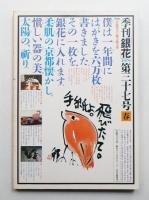 季刊「銀花」第三十七号 春
僕は一年間に
はがきを六万枚
書きました。
その一枚を
銀花に入れます。
柔肌の京都懐かし。
愉しい器の美。
太陽の祈り。
手紙よ。
飛びたて。